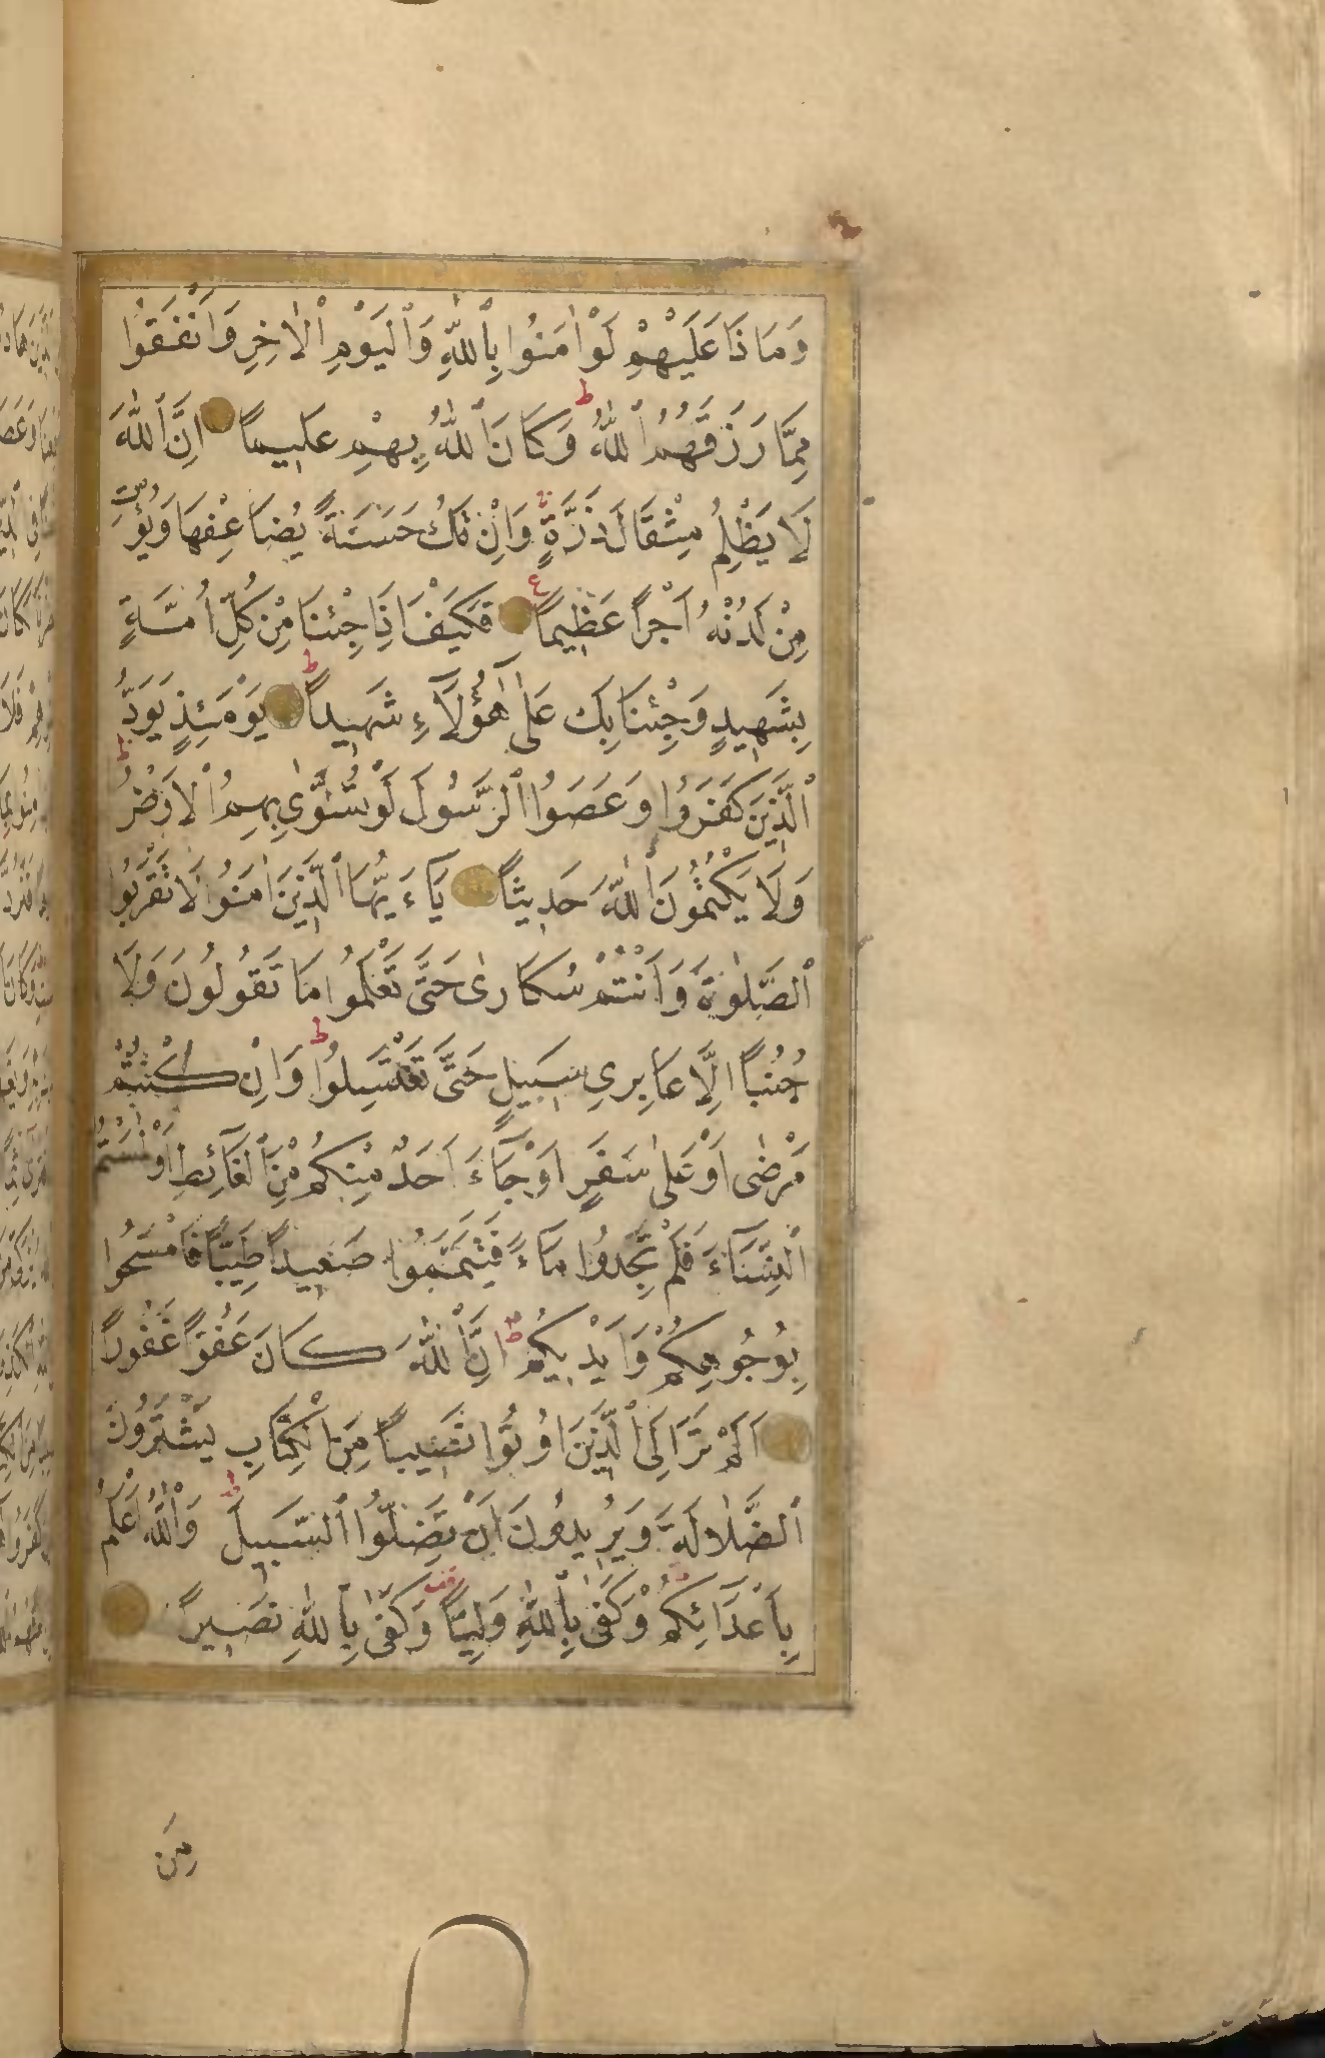 وَمَاذَا عَلَيْهِمْ لَوْ اٰمَنُوا بِاللّٰهِ وَالْيَوْمِ الْاٰخِرِ وَاَنْفَقُوا
مِمَّا رَزَقَهُمُ اللّٰهُ ط وَكَانَ اللّٰهُ بِهِمْ عَلِيمًا اِنَّ اللّٰهَ
لَا يَظْلِمُ مِثْقَالَ ذَرَّةٍ وَاِنْ تَكُ حَسَنَةً يُضَاعِفْهَا وَيُؤْتِ
مِنْ لَدُنْهُ اَجْرًا عَظِيمًا ع فَكَيْفَ اِذَا جِئْنَا مِنْ كُلِّ اُمَّةٍ
بِشَهِيدٍ وَجِئْنَا بِكَ عَلٰى هٰٓؤُلَاءِ شَهِيدًا ط يَوْمَئِذٍ يَوَدُّ
الَّذِينَ كَفَرُوا وَعَصَوُا الرَّسُولَ لَوْ تُسَوّٰى بِهِمُ الْاَرْضُ ط
وَلَا يَكْتُمُونَ اللّٰهَ حَدِيثًا يَاءَيُّهَا الَّذِينَ اٰمَنُوا لَا تَقْرَبُوا
الصَّلٰوةَ وَاَنْتُمْ سُكَارٰى حَتَّى تَعْلَمُوا مَا تَقُولُونَ وَلَا
جُنُبًا اِلَّا عَابِرِي سَبِيلٍ حَتَّى تَغْتَسِلُوا ط وَاِنْ كُنْتُمْ
مَرْضٰى اَوْ عَلٰى سَفَرٍ اَوْ جَآءَ اَحَدٌ مِنْكُمْ مِنَ الْغَآئِطِ اَوْ لٰمَسْتُمُ
النِّسَآءَ فَلَمْ تَجِدُوا مَآءً فَتَيَمَّمُوا صَعِيدًا طَيِّبًا فَامْسَحُوا
بِوُجُوهِكُمْ وَاَيْدِيكُمْ ط اِنَّ اللّٰهَ كَانَ عَفُوًّا غَفُورًا
اَلَمْ تَرَ اِلَى الَّذِينَ اُوتُوا نَصِيبًا مِنَ الْكِتَابِ يَشْتَرُونَ
الضَّلَالَةَ وَيُرِيدُونَ اَنْ تَضِلُّوا السَّبِيلَ ط وَاللّٰهُ اَعْلَمُ
بِاَعْدَائِكُمْ وَكَفٰى بِاللّٰهِ وَلِيًّا وَكَفٰى بِاللّٰهِ نَصِيرًا
مِنَ